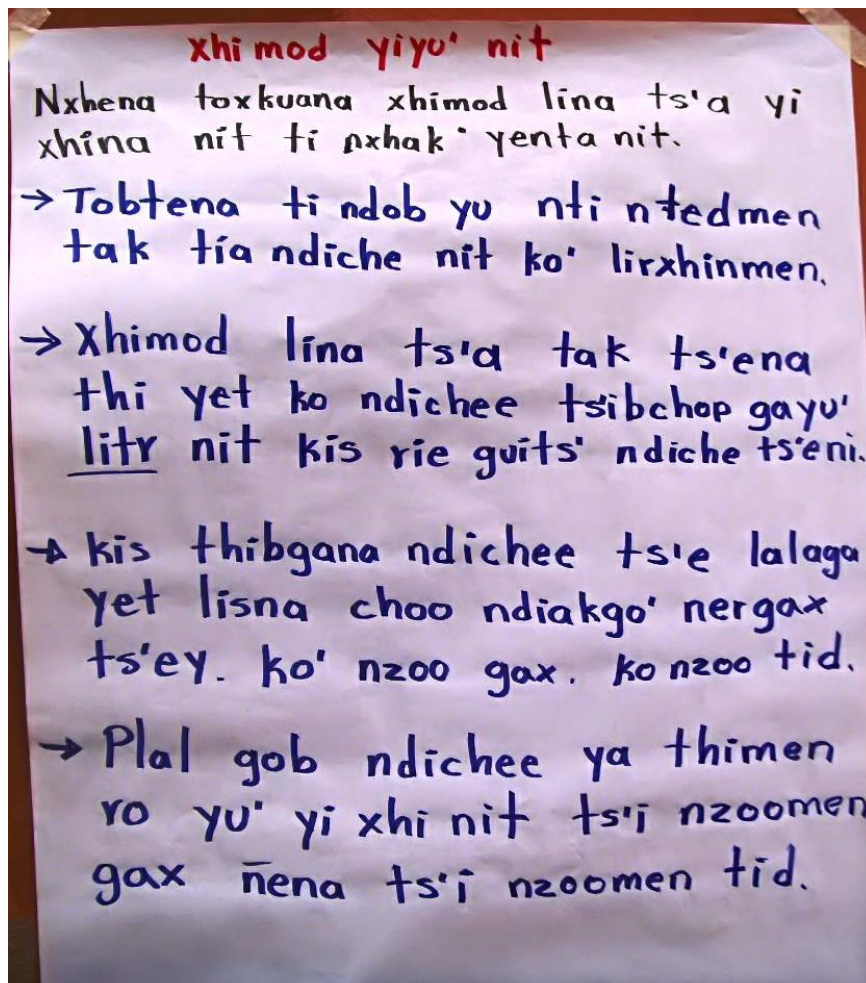 xhi mod yiyu' nit
Nxhena toxkuana xhimod lina ts'a yi
xhina nit ti nxhak' yenta nit.
→ Tobtena ti ndob yu nti ntedmen
tak tía ndiche nit ko' lirxhinmen.
→ Xhimod lina ts'a tak ts'ena
thi yet ko ndichee tsibchop gayu'
litr nit kis rie guits' ndiche ts'eni.
→ kis thibgana ndichee ts'e lalaga
yet lisna choo ndiakgo' nergax
ts'ey. ko' nzoo gax. ko nzoo tid.
→ Plal gob ndichee ya thimen
ro yu' yi xhi nit ts'i nzoomen
gax n̄ena ts'i nzoomen tid.